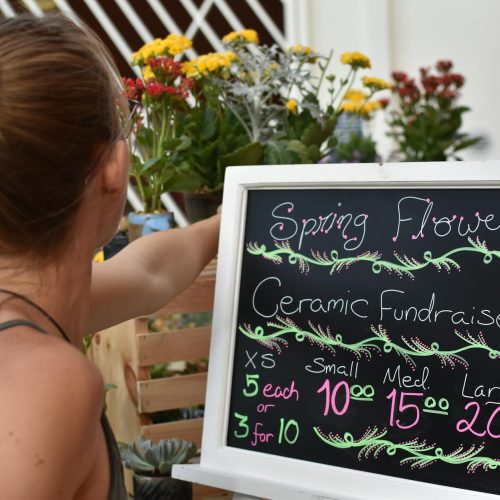 Spring Flowe
Ceramic Fundraise
XS Small Med. Lar
5 each 10.00 15.00 20
or
3 for 10